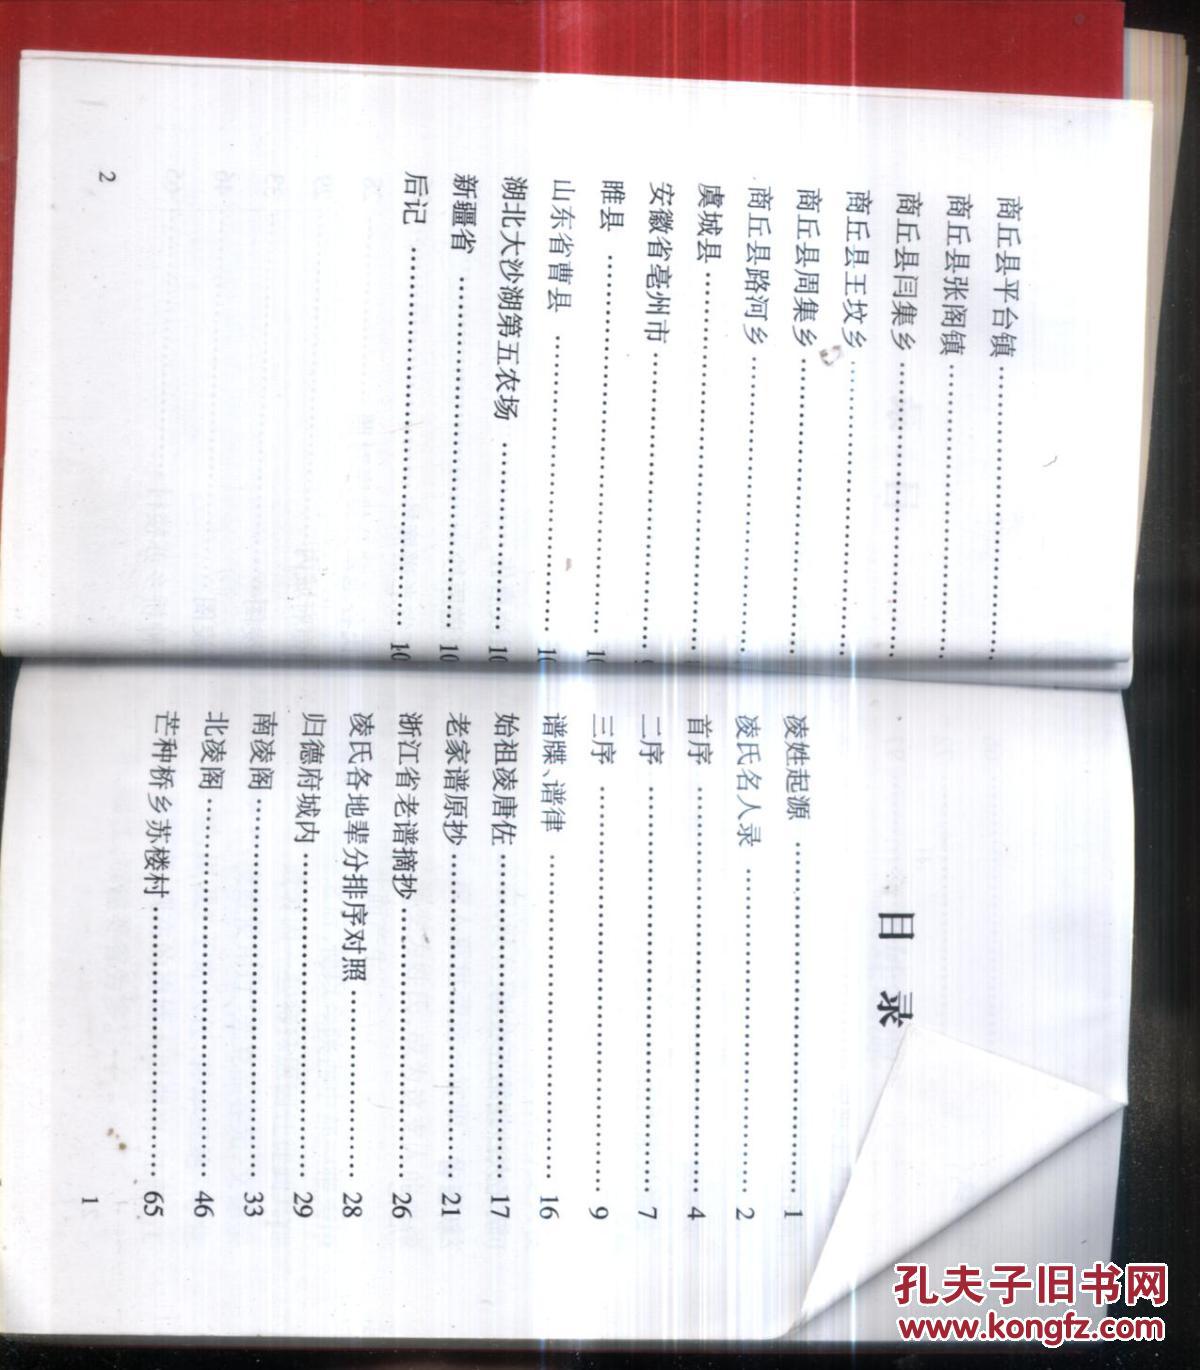 目 录
凌姓起源 …… 1
凌氏名人录 …… 2
首序 …… 4
二序 …… 7
三序 …… 9
谱牒、谱律 …… 16
始祖凌唐佐 …… 17
老家谱原抄 …… 21
浙江省老谱摘抄 …… 26
凌氏各地辈分排序对照 …… 28
归德府城内 …… 29
南凌阁 …… 33
北凌阁 …… 46
芒种桥乡苏楼村 …… 65
1
商丘县平台镇 ……
商丘县张阁镇 ……
商丘县闫集乡 ……
商丘县王坟乡 ……
商丘县周集乡 ……
商丘县路河乡 ……
虞城县 ……
安徽省亳州市 ……
睢县 …… 10
山东省曹县 …… 10
湖北大沙湖第五农场 …… 10
新疆省 …… 10
后记 …… 10
2
孔夫子旧书网
www.kongfz.com